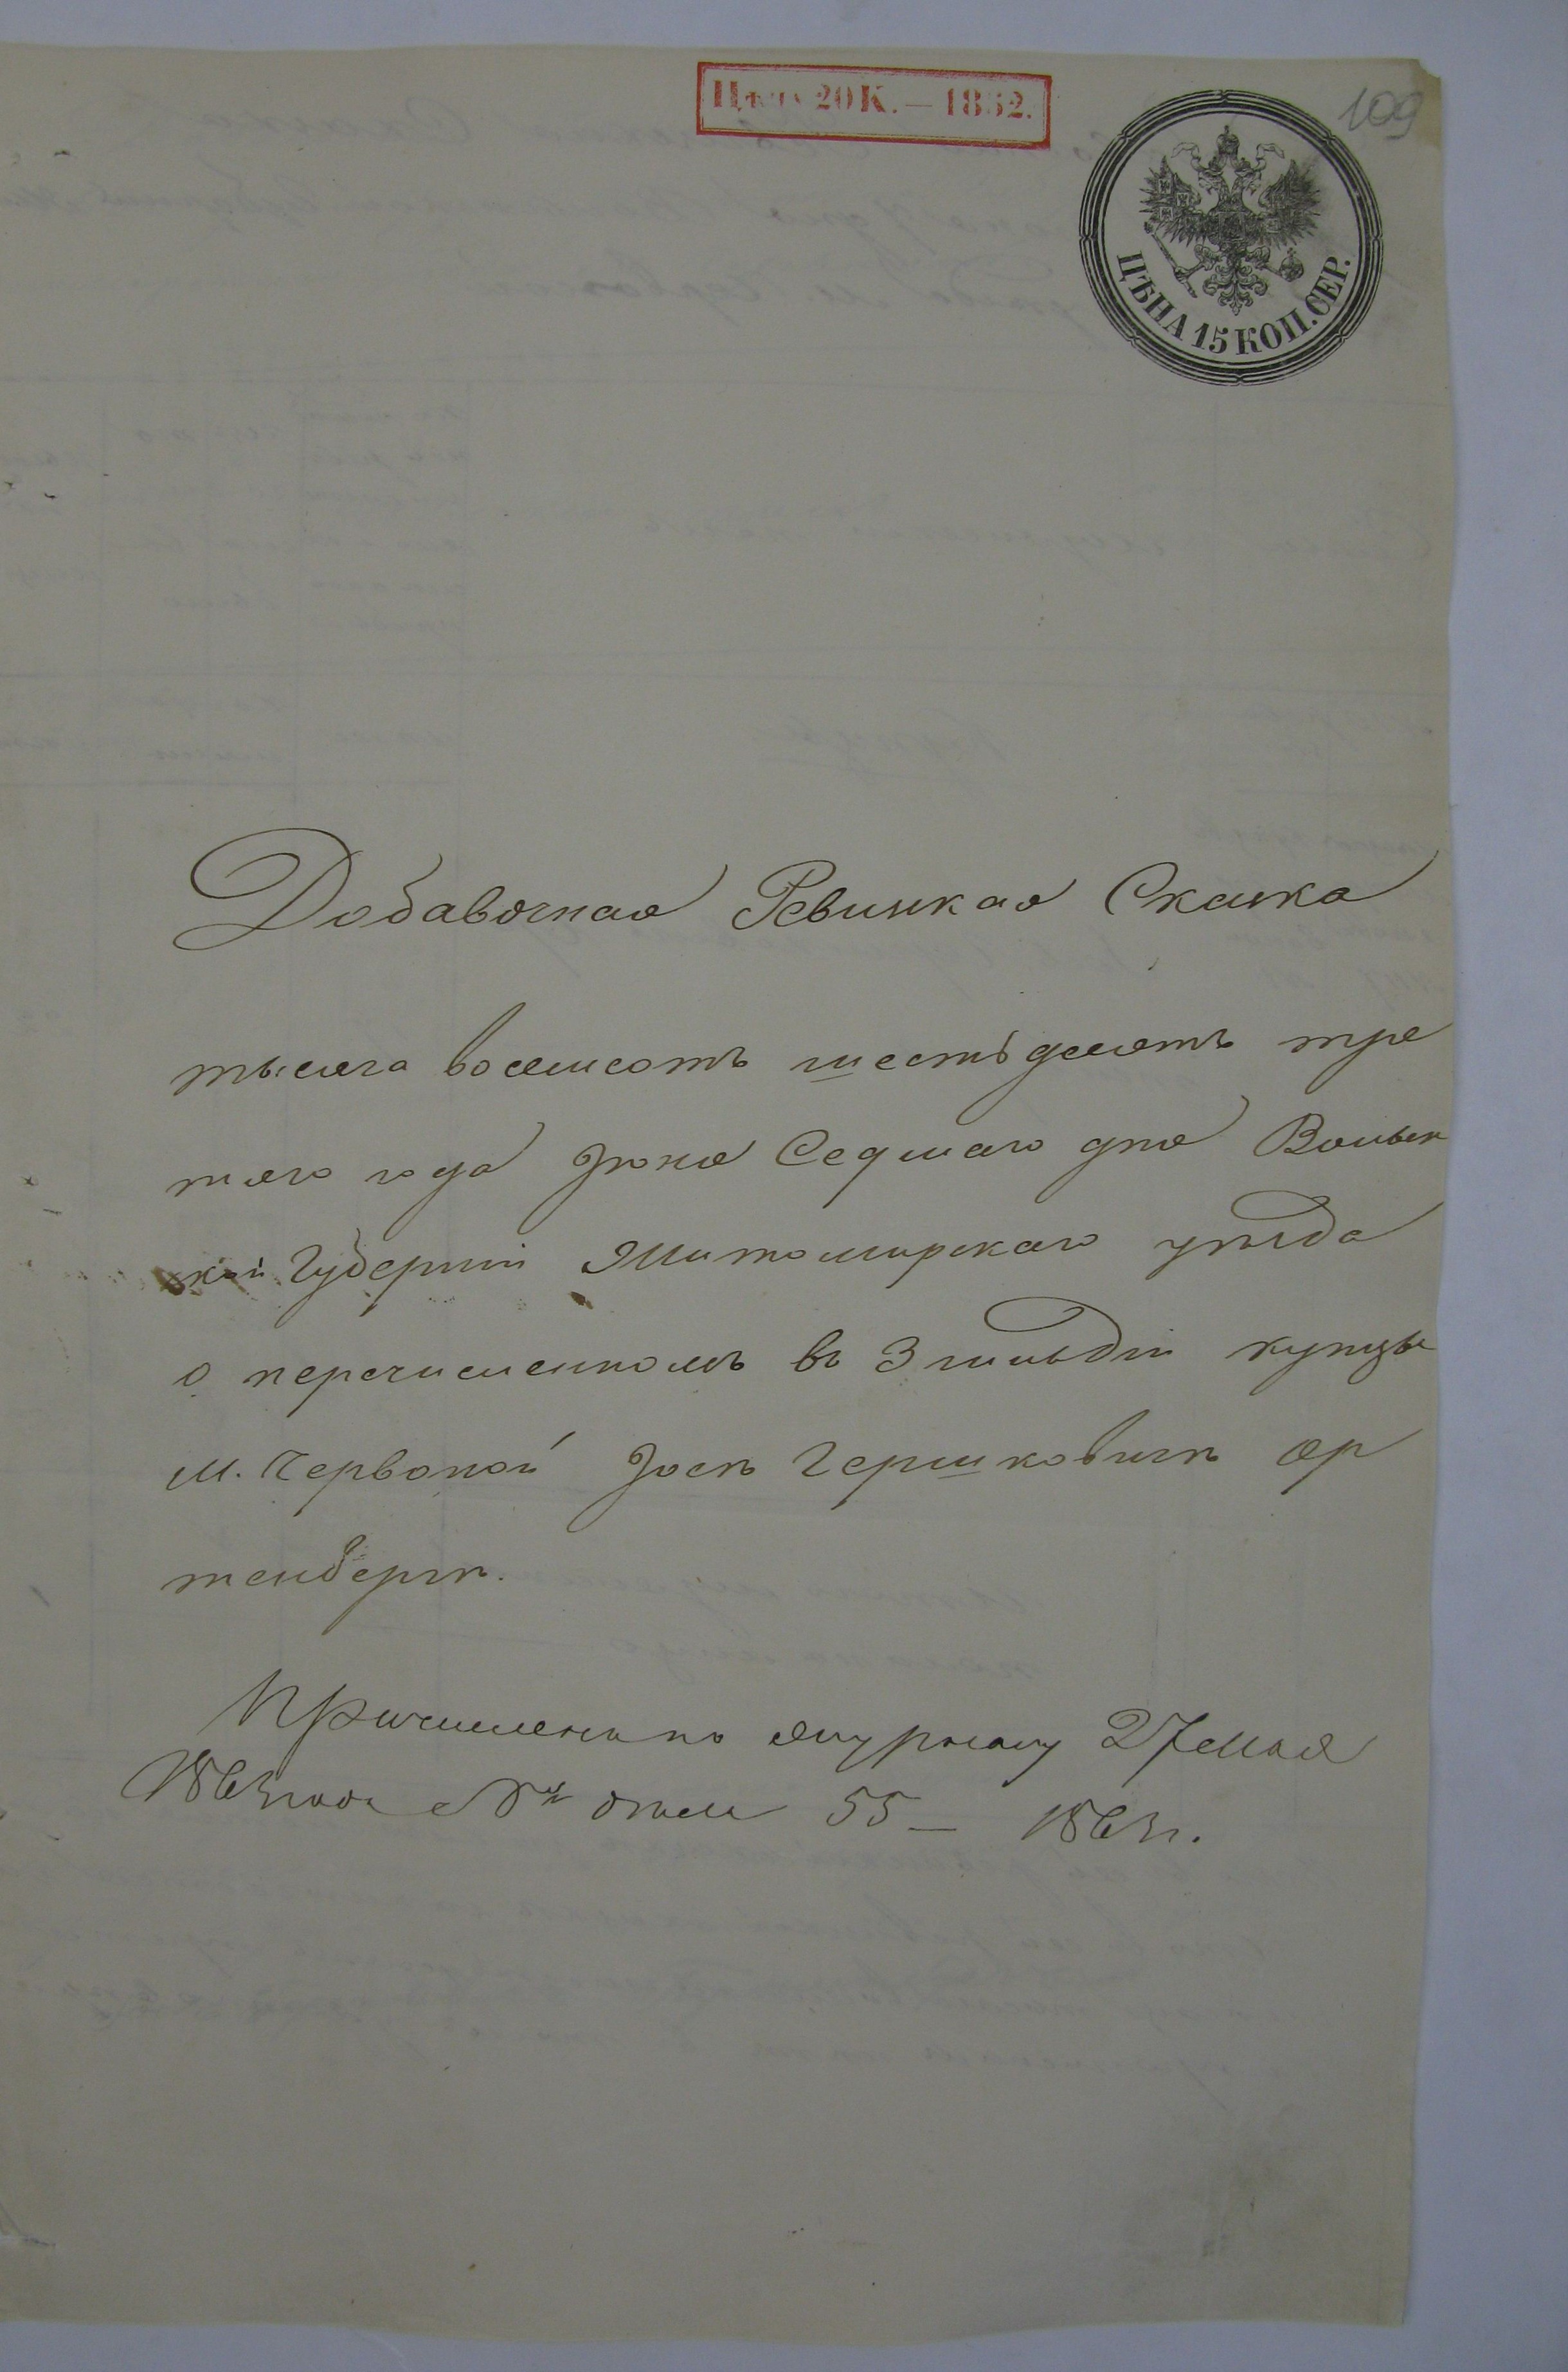 Цѣна 20 К. — 1862.
109
ЦѢНА 15 КОП. СЕР.
Добавочная Ревизкая Сказка
тысяча восемсотъ шестьдесятъ тре
тяго года Іюня Седмаго дня Волын
кой Губерніи Житомирскаго уѣзда
о перечисленномъ въ 3 гильдіи купцы
м. Червоной Іось Гершковичъ ор
тенбергъ.
Причисленъ по журналу 27 мая
1863 года № дѣла 55 — 1863 г.